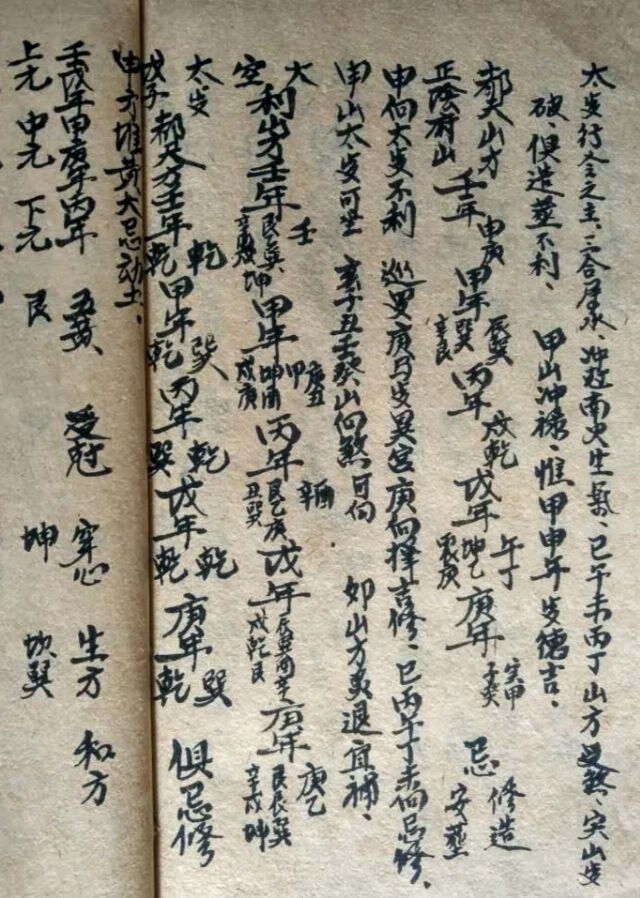 太岁行令之主、三合居水、冲在南火生气、巳午未丙丁山方受煞、寅山岁
破、俱造葬不利、 甲山冲禄、惟甲申年岁德吉、
都天山方 壬年 申庚 甲年 辰巽 丙年 戌乾 戊年 午丁 庚年 寅甲 忌 修造
正陰府山 辛艮 巽 乾 坤乙 子癸 安葬
申向太岁不利 巡罗庚与岁异宫庚向择吉修、巳丙午丁未向忌修、
申山太岁可坐 亥子丑壬癸山向煞可向 卯山方灸退宜補、
大利山方壬年 壬 艮巽 甲年 甲庚丑 坤酉 丙年 辛酉 艮乙庚 戊年 辰巽酉辛 庚年 庚乙
空 坤 戌庚 丑巽 戌乾艮 艮辰巽 辛戌坤
太岁 都天方壬年 乾 甲年 巽 丙年 乾 戊年 乾 庚年 巽 俱忌修
戊子 乾 乾 巽 乾 乾
申子堆黄大忌动土、
壬戌年甲庚年丙年 五黄、 受尅 穿心 生方 和方
上元 中元 下元 艮 坤 坎巽